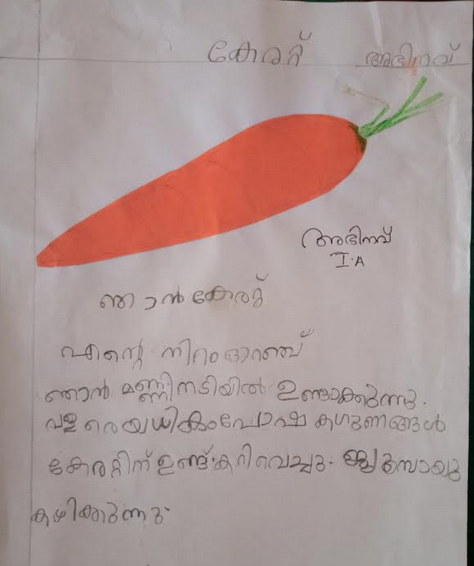 കേരറ്റ് അഭിനവ്
അഭിനവ്
I.A
ഞാൻ കേരറ്റ്
എന്റെ നിറം ഓറഞ്ച്
ഞാൻ മണ്ണിനടിയിൽ ഉണ്ടാക്കുന്നു.
വളരെയധികം പോഷകഗുണങ്ങൾ
കേരറ്റിന് ഉണ്ട്. കറിവെച്ചു.
കഴിക്കുന്നു.